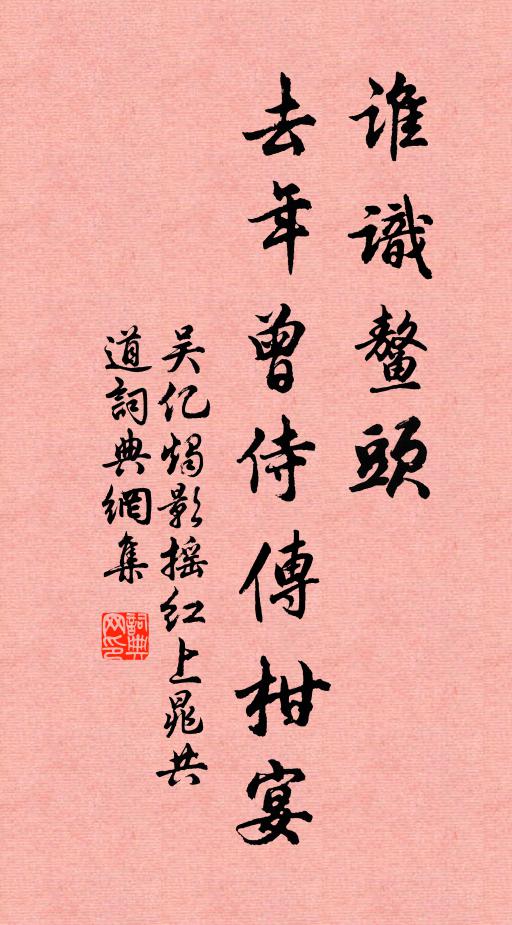 谁識鳌頭
去年曾侍傳柑宴
吴亿燭影摇红上晁共
道詞典網集
詞典网印